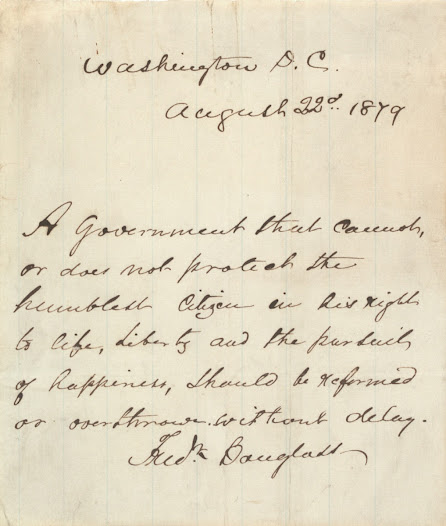 Washington D.C.
August 22d. 1879
A Government that cannot,
or does not protect the
humblest Citizen in his right
to life, Liberty and the pursuit
of happiness, should be reformed
or overthrown. without delay.
Fredk Douglass